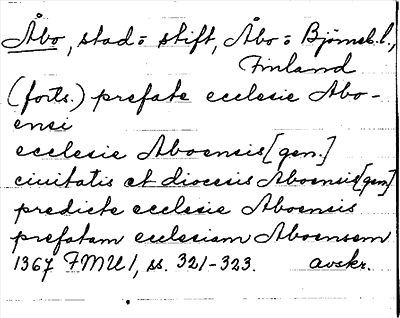 Åbo, stad = stift, Åbo = Björneb. l.,
Finland
(forts.) prefate ecclesie Abo-
ensi
ecclesie Aboensis [gen.]
ciuitatis et diocesis Aboensis [gen]
predicte ecclesie Aboensis
prefatam ecclesiam Aboensem
1367 FMU 1, ss. 321-323. avskr.